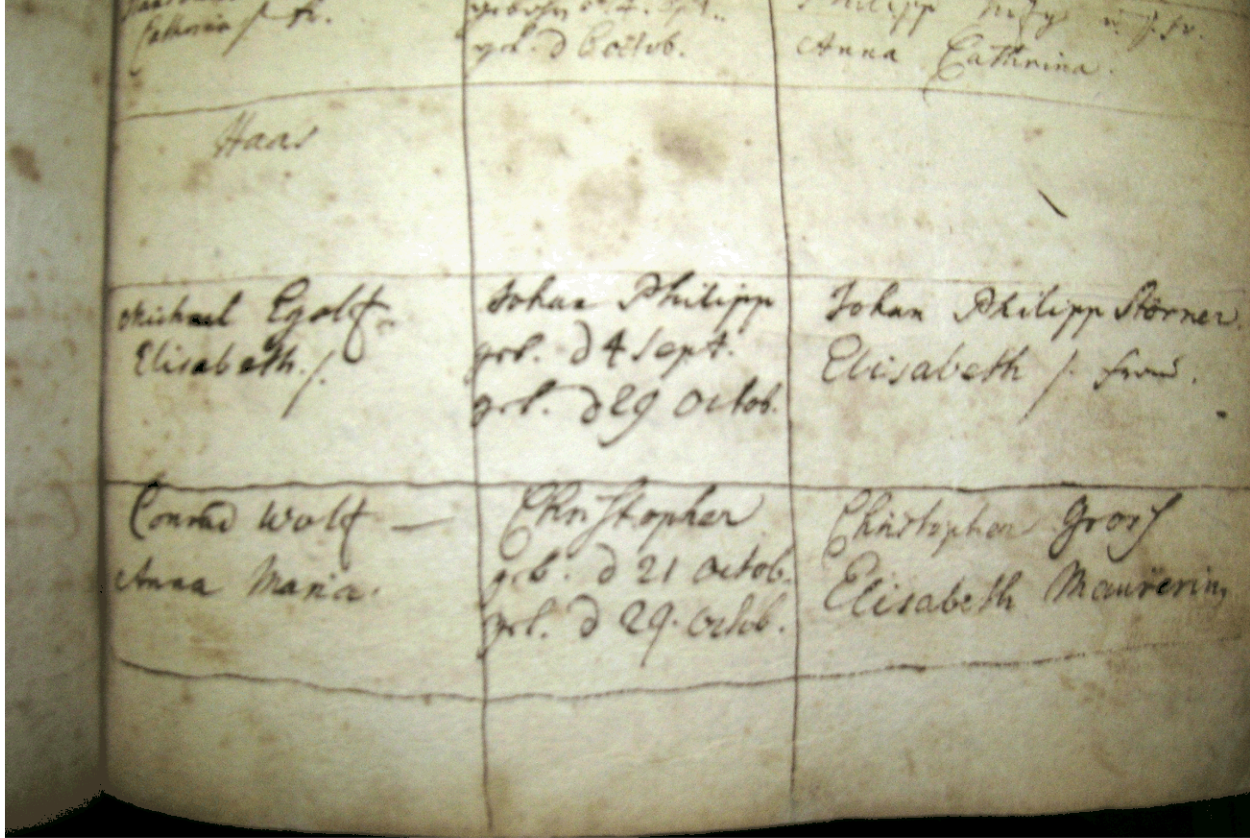 Catharina /
get. d 6 octob.
Philipp
Anna Cathrina.
Haas
Michael Egolf
Elisabeth /.
Johan Philipp
geb. d 4 Sept.
get. d 29 Octob.
Johan Philipp Störner.
Elisabeth /. frau.
Conrad Wolf —
Anna Maria.
Christopher
geb. d 21 octob.
get. d 29. octob.
Christopher Gross
Elisabeth Maurerin,